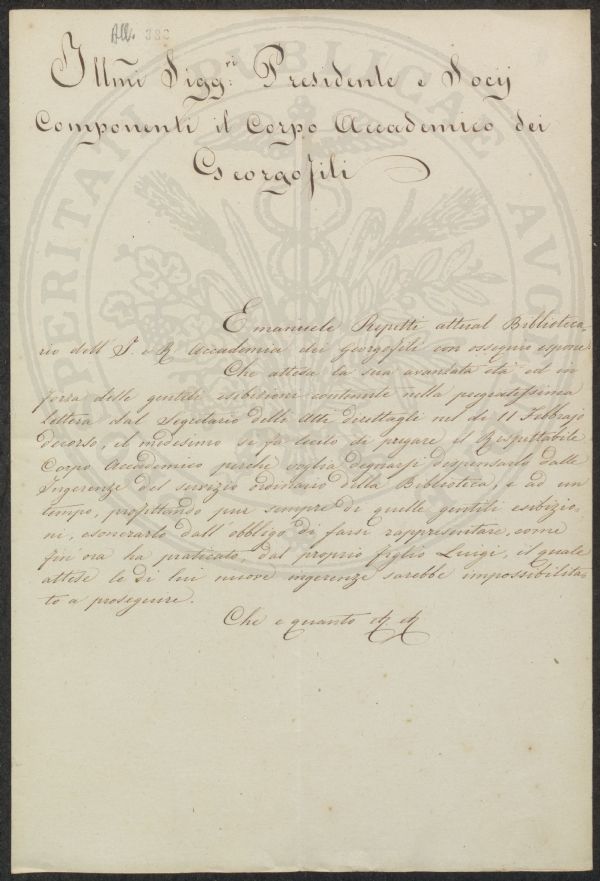 All. 383
Illmi Sigg:ri Presidente e Socij
Componenti il Corpo Accademico dei
Georgofili
PROSPERITATI PUBLICAE AUGENDAE
Emanuele Repetti attual Biblioteca-
rio dell'I. e R. Accademia dei Georgofili con ossequio espone
Che attesa la sua avanzata età ed in
forza delle gentili esibizioni contenute nella pregiatissima
lettera dal Segretario delli Atti direttagli nel dì 11 Febbrajo
decorso, il medesimo si fa lecito di pregare il Rispettabile
Corpo Accademico perchè voglia degnarsi dispensarlo dalle
Ingerenze del servizio ordinario della Biblioteca, e ad un
tempo, profittando pur sempre di quelle gentili esibizio-
ni, esonerarlo dall'obbligo di farsi rappresentare, come
fin'ora ha praticato, dal proprio figlio Luigi, il quale
attese le di lui nuove ingerenze sarebbe impossibilita-
to a proseguire.
Che e quanto